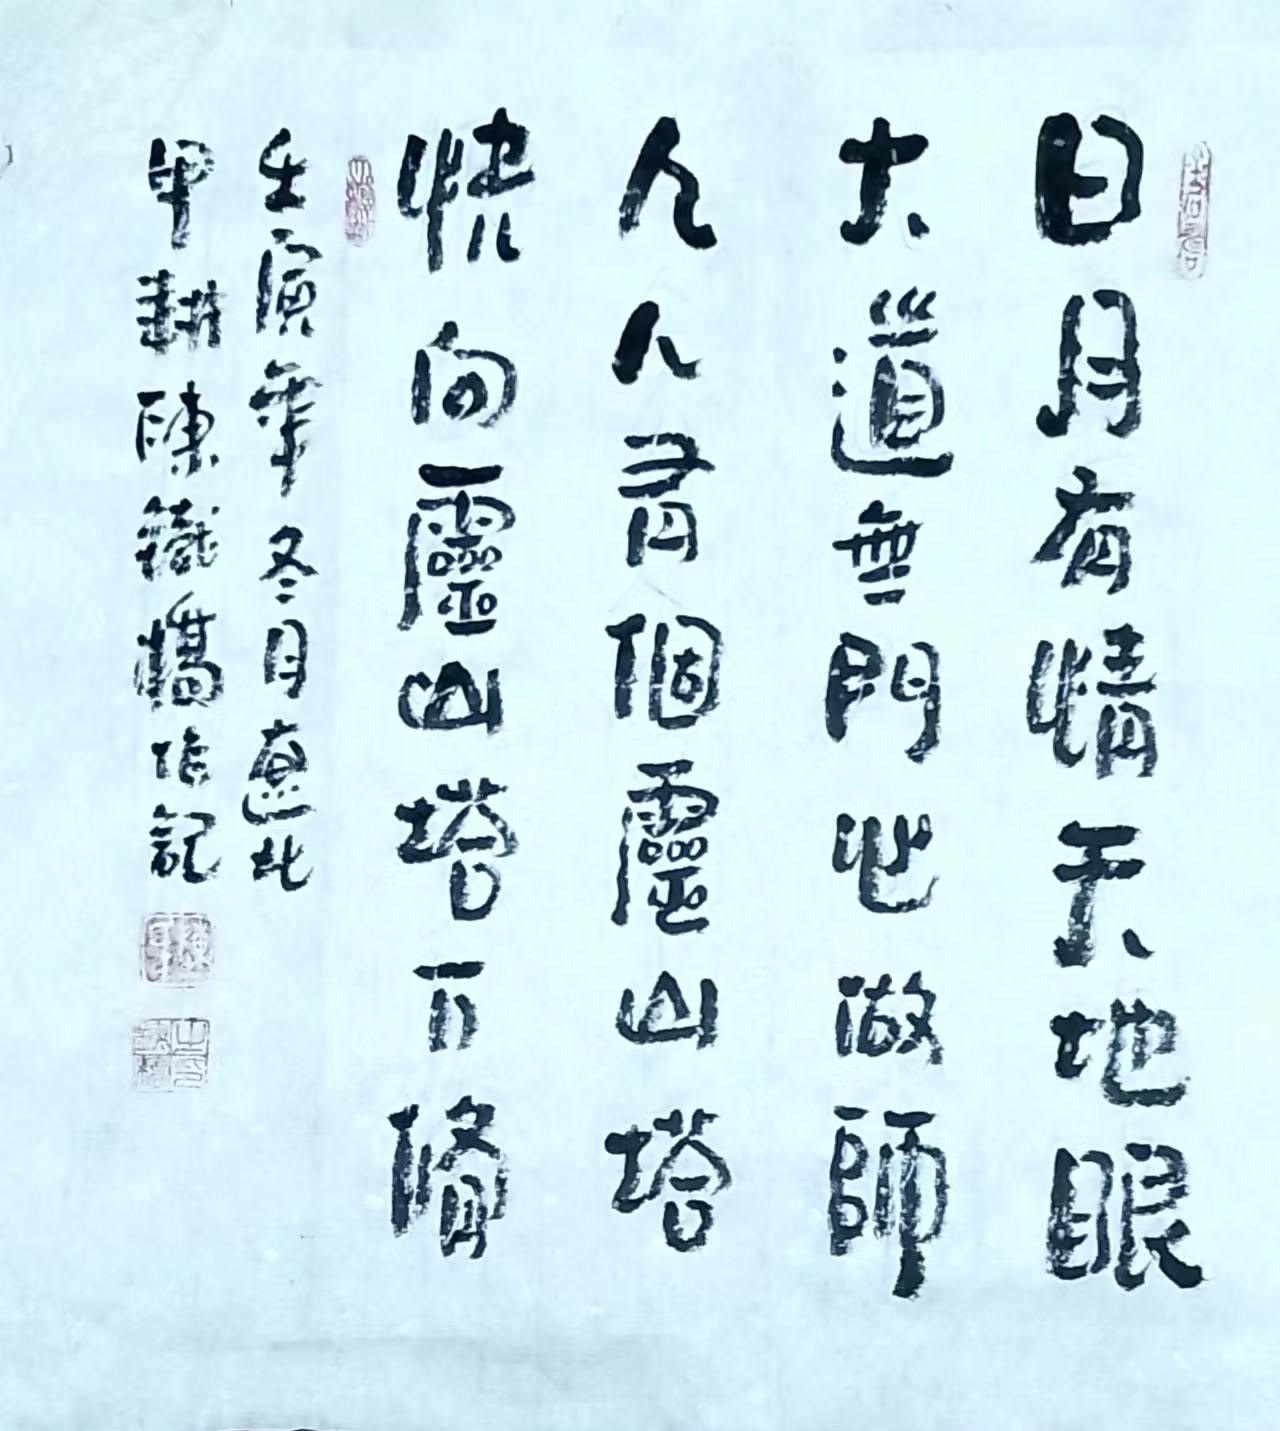 日月有情天地眼
大道無門心做師
人人有個靈山塔
恍向靈山塔下修
壬寅年冬月 北
甲耕陳鐵橋作記